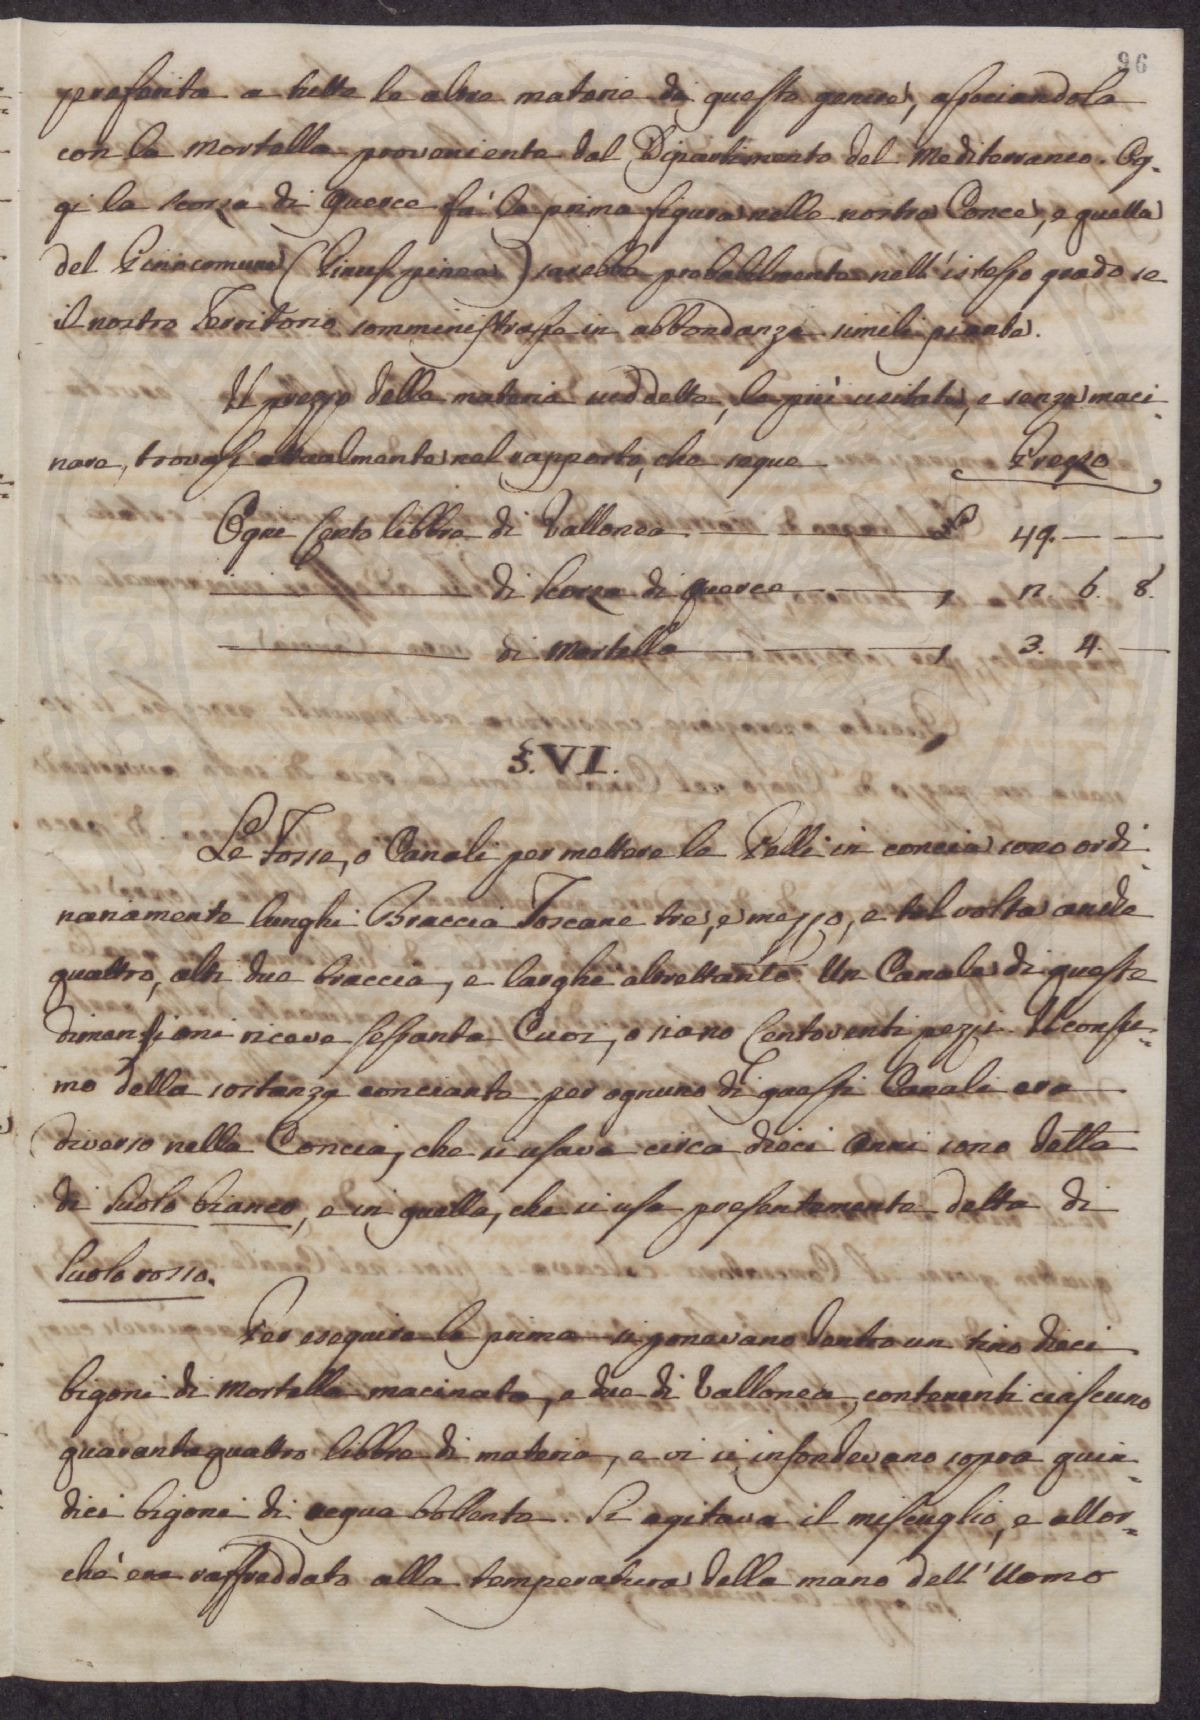 96
preferita a tutte le altre materie di questo genere, associandola
con la Mortella proveniente dal Dipartimento del Mediterraneo. Og-
gi la scorza di Querce fà la prima figura nelle nostre Conce, e quella
del Pino comune (Pinus pinea) sarebbe probabilmente nell'istesso grado se
il nostro Territorio somministrasse in abbondanza simili piante.
Il prezzo delle materie suddette, le più usitate, e senza maci-
nare, trovasi attualmente nel rapporto, che segue Prezzo
Ogni Cento libbre di Vallonea 49. — —
di Scorza di Querce " 11. 6. 8.
di Mortella " 3. 4. —
§. VI.
Le Fosse, o Canali per mettere le Pelli in concia sono ordi-
nariamente lunghi Braccia Toscane tre, e mezzo, e tal volta anche
quattro, alti due braccia, e larghi altrettanto. Un Canale di queste
dimensioni riceve sessanta Cuoi, o siano Centoventi pezzi. Il consu-
mo della sostanza conciante per ognuno di questi Canali era
diverso nella Concia, che si usava circa dieci Anni sono detta
di Suolo bianco, e in quella, che si usa presentemente detta di
Suolo rosso.
Per eseguire la prima si ponevano dentro un tino dieci
bigoni di Mortella macinata, e due di Vallonea, contenenti ciascuno
quarantaquattro libbre di materia, e vi si infondevano sopra quin-
dici bigoni di acqua bollente. Si agitava il miscuglio, e allor-
chè era raffreddato alla temperatura della mano dell'Uomo